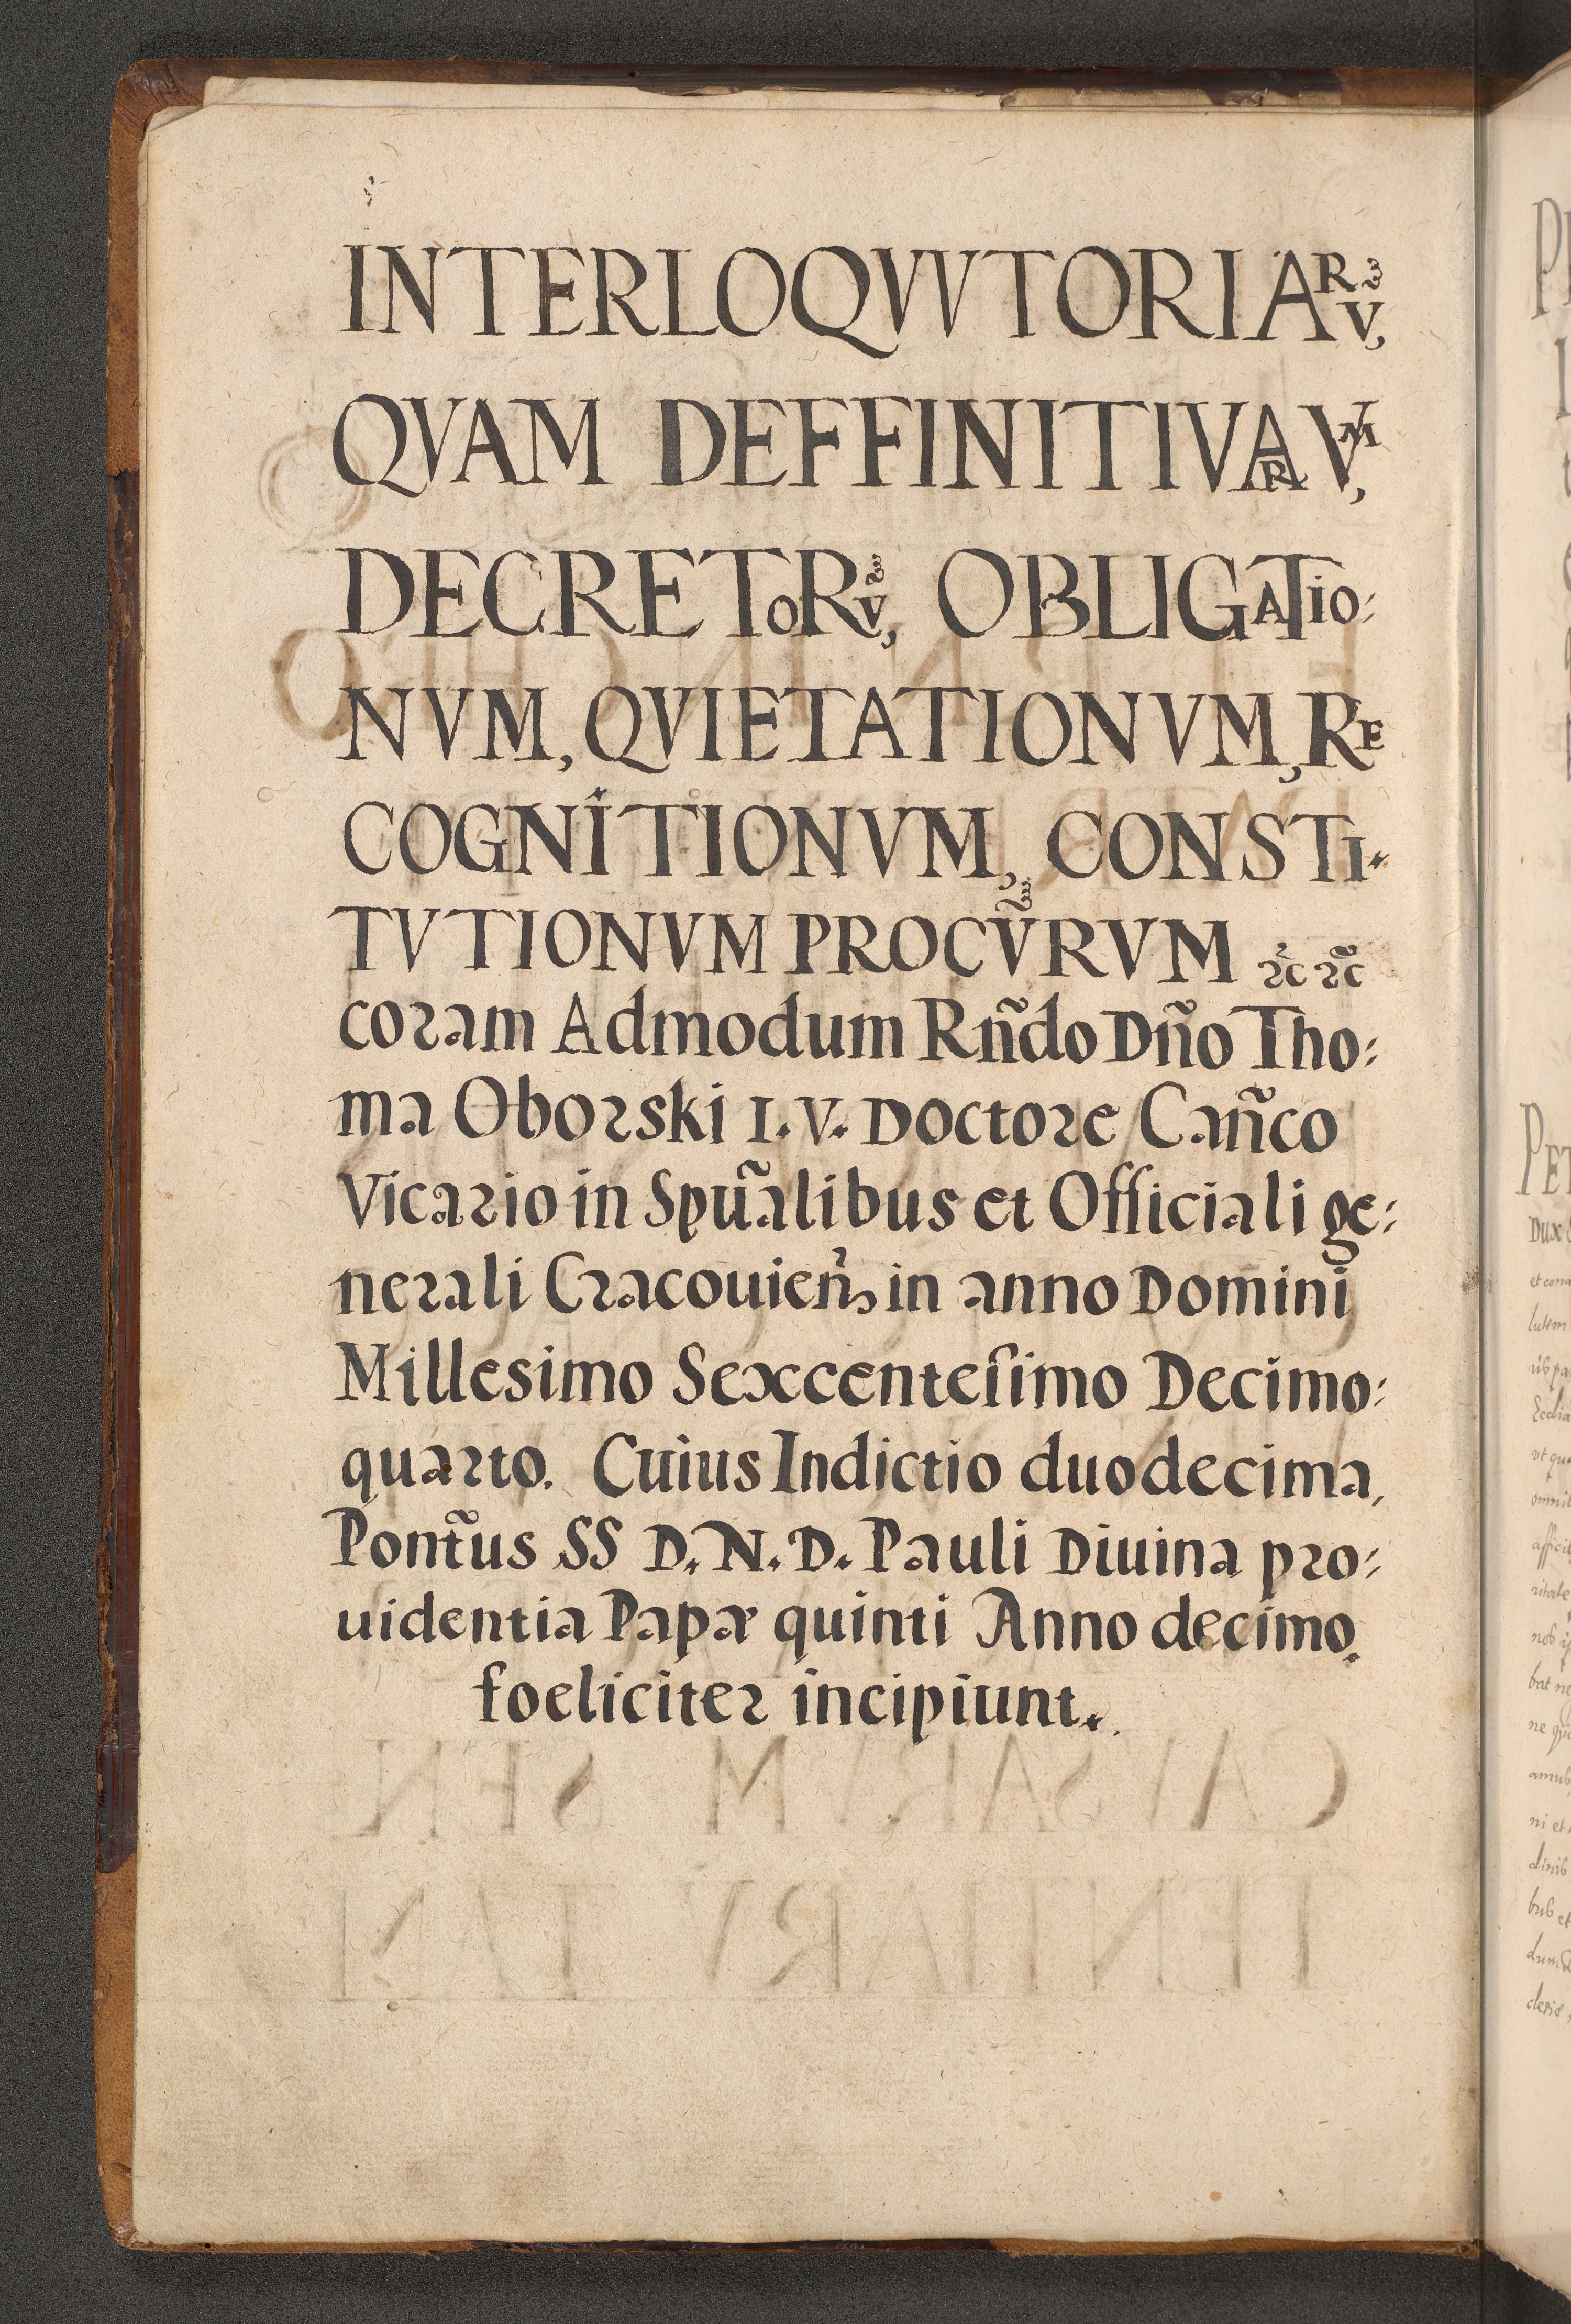 INTERLOQVVTORIARṼ,
QVAM DEFFINITIVARVM,
DECRETORṼ, OBLIGATIO:
NVM, QVIETATIONVM, RE
COGNITIONVM, CONSTI-
TVTIONVM PROCṼRVM ꝛc ꝛc̃
coram Admodum Rñdo Dño Tho:
ma Oborski I. V. Doctore Cañco
Vicario in Spũalibus et Officiali ge:
nerali Cracouień, in anno Domini
Millesimo Sexcenteſimo Decimo:
quarto. Cuius Indictio duodecima,
Pont̃us SS D. N. D. Pauli Diuina pro:
uidentia Papæ quinti Anno decimo.
foeliciter incipiunt.